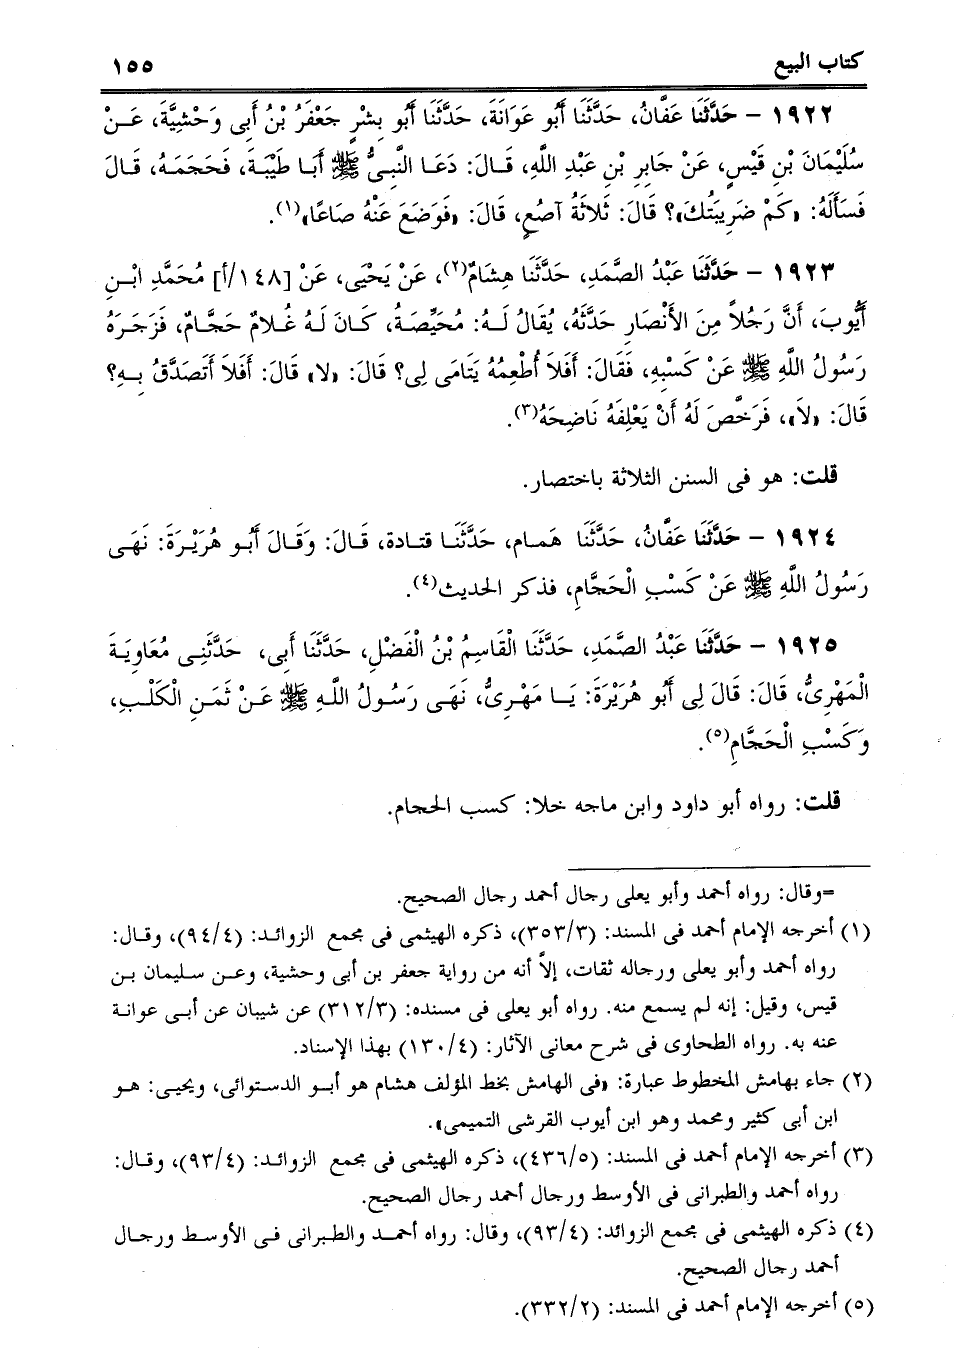 كتاب البيع ١٥٥
١٩٢٢ – حَدَّثَنَا عَفَّانُ، حَدَّثَنَا أَبُو عَوَانَةَ، حَدَّثَنَا أَبُو بِشْرٍ جَعْفَرُ بْنُ أَبِى وَحْشِيَّةَ، عَنْ
سُلَيْمَانَ بْنِ قَيْسٍ، عَنْ جَابِرِ بْنِ عَبْدِ اللَّهِ، قَالَ: دَعَا النَّبِىُّ ﷺ أَبَا طَيْبَةَ، فَحَجَمَهُ، قَالَ
فَسَأَلَهُ: «كَمْ ضَرِيبَتُكَ»؟ قَالَ: ثَلاَثَةُ آصُعٍ، قَالَ: «فَوَضَعَ عَنْهُ صَاعًا»(١).
١٩٢٣ – حَدَّثَنَا عَبْدُ الصَّمَدِ، حَدَّثَنَا هِشَامٌ(٢)، عَنْ يَحْيَى، عَنْ [١٤٨/أ] مُحَمَّدِ ابْنِ
أَيُّوبَ، أَنَّ رَجُلاً مِنَ الأَنْصَارِ حَدَّثَهُ، يُقَالُ لَهُ: مُحَيِّصَةُ، كَانَ لَهُ غُلاَمٌ حَجَّامٌ، فَزَجَرَهُ
رَسُولُ اللَّهِ ﷺ عَنْ كَسْبِهِ، فَقَالَ: أَفَلاَ أُطْعِمُهُ يَتَامَى لِى؟ قَالَ: «لا» قَالَ: أَفَلاَ أَتَصَدَّقُ بِهِ؟
قَالَ: «لاَ»، فَرَخَّصَ لَهُ أَنْ يَعْلِفَهُ نَاضِحَهُ(٣).
قلت: هو فى السنن الثلاثة باختصار.
١٩٢٤ – حَدَّثَنَا عَفَّانُ، حَدَّثَنَا هَمام، حَدَّثَنَا قتادة، قَالَ: وَقَالَ أَبُو هُرَيْرَةَ: نَهَى
رَسُولُ اللَّهِ ﷺ عَنْ كَسْبِ الْحَجَّامِ، فذكر الحديث(٤).
١٩٢٥ – حَدَّثَنَا عَبْدُ الصَّمَدِ، حَدَّثَنَا الْقَاسِمُ بْنُ الْفَضْلِ، حَدَّثَنَا أَبِى، حَدَّثَنِى مُعَاوِيَةَ
الْمَهْرِىُّ، قَالَ: قَالَ لِى أَبُو هُرَيْرَةَ: يَا مَهْرِىُّ، نَهَى رَسُولُ اللَّهِ ﷺ عَنْ ثَمَنِ الْكَلْبِ،
وَكَسْبِ الْحَجَّامِ(٥).
قلت: رواه أبو داود وابن ماجه خلا: كسب الحجام.
=وقال: رواه أحمد وأبو يعلى رجال أحمد رجال الصحيح.
(١) أخرجه الإمام أحمد فى المسند: (٣٥٣/٣)، ذكره الهيثمى فى مجمع الزوائد: (٩٤/٤)، وقال:
رواه أحمد وأبو يعلى ورجاله ثقات، إلاَّ أنه من رواية جعفر بن أبى وحشية، وعن سليمان بن
قيس، وقيل: إنه لم يسمع منه. رواه أبو يعلى فى مسنده: (٣١٢/٣) عن شيبان عن أبى عوانة
عنه به. رواه الطحاوى فى شرح معانى الآثار: (١٣٠/٤) بهذا الإسناد.
(٢) جاء بهامش المخطوط عبارة: «فى الهامش بخط المؤلف هشام هو أبو الدستوائى، ويحيى: هو
ابن أبى كثير ومحمد وهو ابن أيوب القرشى التميمى».
(٣) أخرجه الإمام أحمد فى المسند: (٤٣٦/٥)، ذكره الهيثمى فى مجمع الزوائد: (٩٣/٤)، وقال:
رواه أحمد والطبرانى فى الأوسط ورجال أحمد رجال الصحيح.
(٤) ذكره الهيثمى فى مجمع الزوائد: (٩٣/٤)، وقال: رواه أحمد والطبرانى فى الأوسط ورجال
أحمد رجال الصحيح.
(٥) أخرجه الإمام أحمد فى المسند: (٣٣٢/٢).